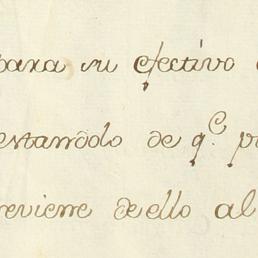 para su efectivo
estandolo de q.e p
reviene de ello al